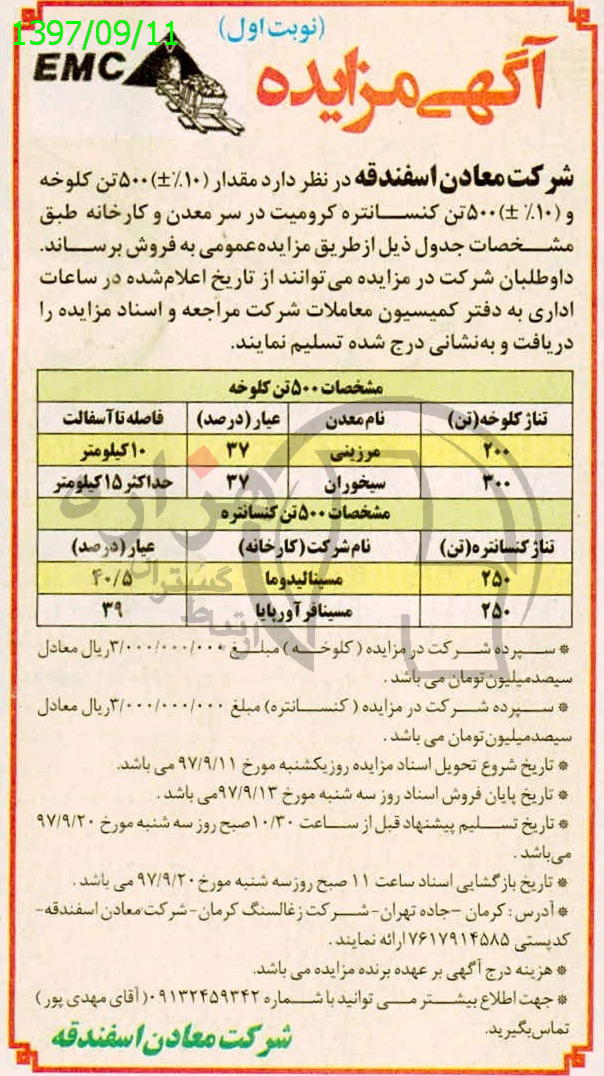 1397/09/11
(نوبت اول)
EMC
آگهی مزایده
شرکت معادن اسفندقه در نظر دارد مقدار (۱۰٪±)۵۰۰تن کلوخه
و (۱۰٪ ±)۵۰۰تن کنسانتره کرومیت در سر معدن و کارخانه طبق
مشخصات جدول ذیل ازطریق مزایده عمومی به فروش برساند.
داوطلبان شرکت در مزایده می توانند از تاریخ اعلام شده در ساعات
اداری به دفتر کمیسیون معاملات شرکت مراجعه و اسناد مزایده را
دریافت و به نشانی درج شده تسلیم نمایند.
مشخصات ۵۰۰تن کلوخه
تناژ کلوخه(تن) نام معدن عیار(درصد) فاصله تا آسفالت
۲۰۰ مرزینی ۳۷ ۱۰کیلومتر
۳۰۰ سیخوران ۳۷ حداکثر ۱۵ کیلومتر
مشخصات ۵۰۰تن کنسانتره
تناژ کنسانتره(تن) نام شرکت(کارخانه) عیار(درصد)
۲۵۰ مسینالیدوما ۴۰/۵
۲۵۰ مسینافرآورپایا ۳۹
* سپرده شرکت در مزایده ( کلوخه ) مبلغ ۳/۰۰۰/۰۰۰/۰۰۰ریال معادل
سیصدمیلیون تومان می باشد .
* سپرده شرکت در مزایده ( کنسانتره) مبلغ ۳/۰۰۰/۰۰۰/۰۰۰ریال معادل
سیصدمیلیون تومان می باشد .
* تاریخ شروع تحویل اسناد مزایده روزیکشنبه مورخ ۹۷/۹/۱۱ می باشد.
* تاریخ پایان فروش اسناد روز سه شنبه مورخ ۹۷/۹/۱۳می باشد .
* تاریخ تسلیم پیشنهاد قبل از ساعت ۱۰/۳۰صبح روز سه شنبه مورخ ۹۷/۹/۲۰
می باشد .
* تاریخ بازگشایی اسناد ساعت ۱۱ صبح روزسه شنبه مورخ ۹۷/۹/۲۰ می باشد .
* آدرس : کرمان -جاده تهران- شرکت زغالسنگ کرمان-شرکت معادن اسفندقه-
کدپستی ۷۶۱۷۹۱۴۵۸۵ارائه نمایند .
* هزینه درج آگهی بر عهده برنده مزایده می باشد.
* جهت اطلاع بیشتر می توانید با شماره ۰۹۱۳۲۴۵۹۳۴۲( آقای مهدی پور )
تماس بگیرید.
شرکت معادن اسفندقه
هزاره
گستران
ارتباط